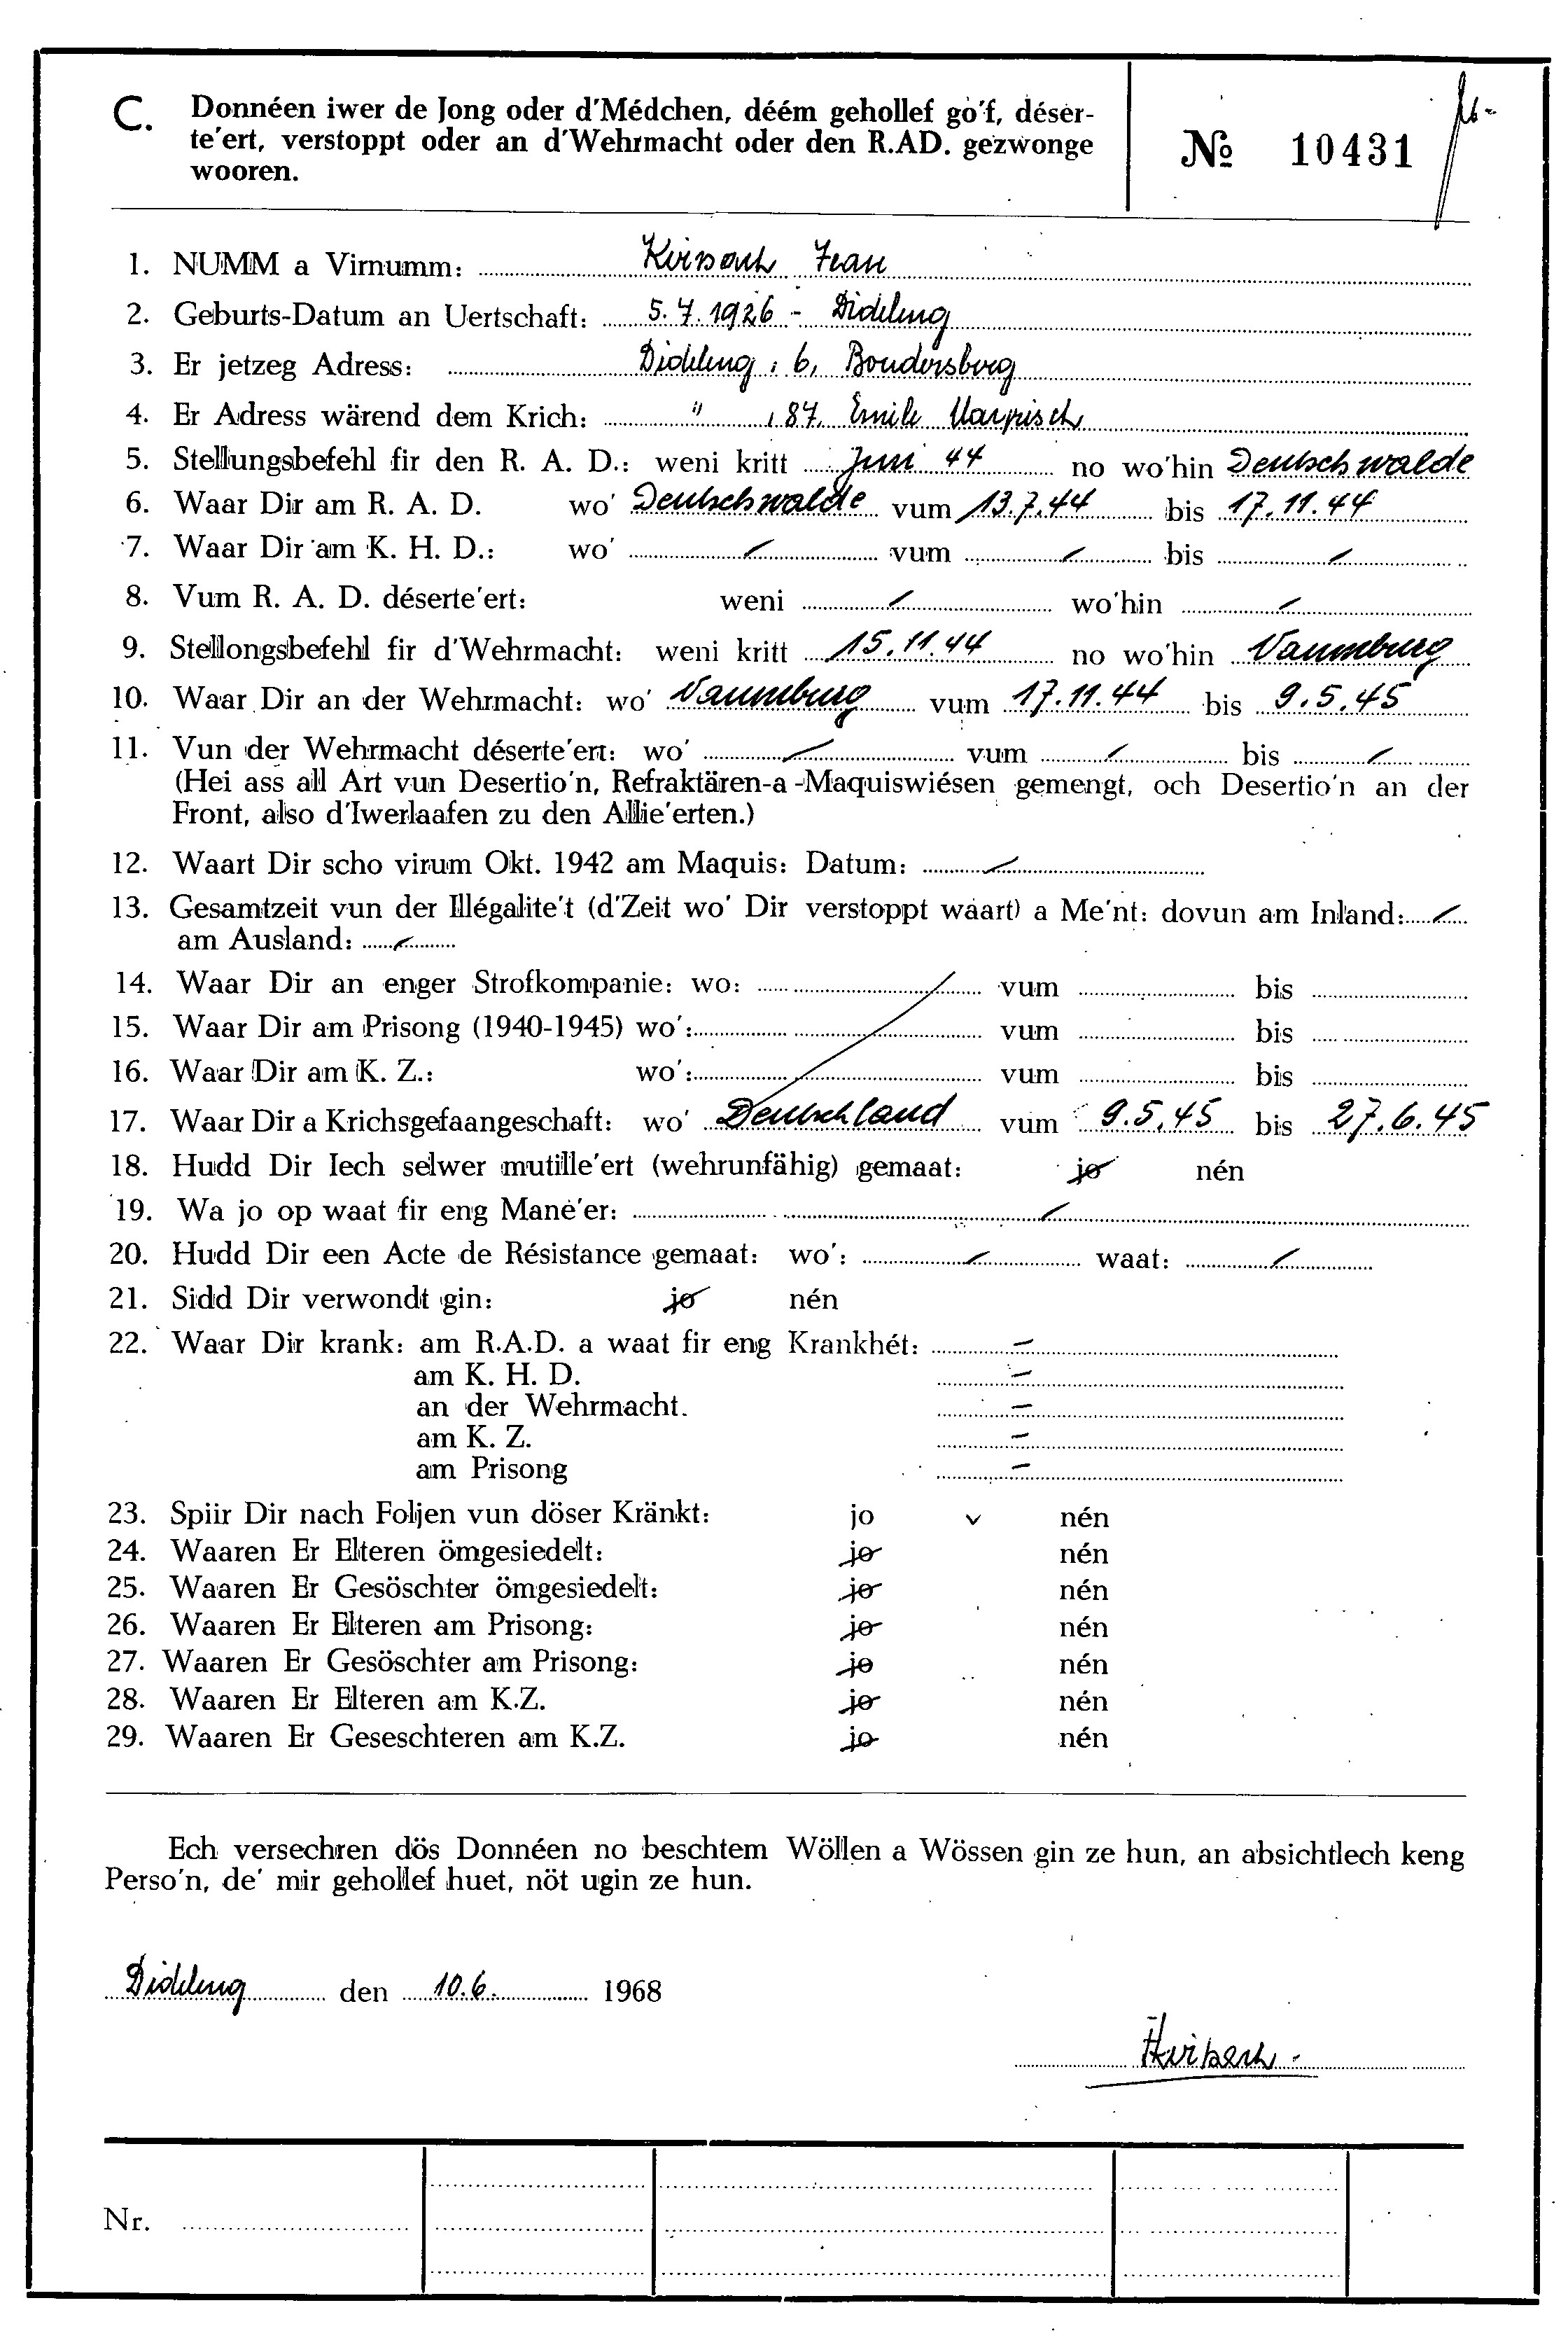 C. Donnéen iwer de Jong oder d'Médchen, déém gehollef go'f, déser-
te'ert, verstoppt oder an d'Wehrmacht oder den R.AD. gezwonge
wooren.
№ 10431
1. NUMM a Virnumm: Jean
2. Geburts-Datum an Uertschaft: 5.7.1926 - Dideleng
3. Er jetzeg Adress: Dideleng, 6, Boudersberg
4. Er Adress wärend dem Krich: " , 87, Emile
5. Stellungsbefehl fir den R. A. D.: weni kritt Juni 44 no wo'hin Deutschwalde
6. Waar Dir am R. A. D. wo' Deutschwalde vum 13.7.44 bis 17.11.44
7. Waar Dir am K. H. D.: wo' / vum / bis /
8. Vum R. A. D. déserte'ert: weni / wo'hin /
9. Stellongsbefehl fir d'Wehrmacht: weni kritt 15.11.44 no wo'hin Naumburg
10. Waar Dir an der Wehrmacht: wo' Naumburg vum 17.11.44 bis 9.5.45
11. Vun der Wehrmacht déserte'ert: wo' / vum / bis /
(Hei ass all Art vun Desertio'n, Refraktären-a -Maquiswiésen gemengt, och Desertio'n an der
Front, also d'Iwerlaafen zu den Allie'erten.)
12. Waart Dir scho virum Okt. 1942 am Maquis: Datum: /
13. Gesamtzeit vun der Illégalite't (d'Zeit wo' Dir verstoppt waart) a Me'nt: dovun am Inland: /
am Ausland: /
14. Waar Dir an enger Strofkompanie: wo: vum bis
15. Waar Dir am Prisong (1940-1945) wo': vum bis
16. Waar Dir am K. Z.: wo': vum bis
17. Waar Dir a Krichsgefaangeschaft: wo' Deutschland vum 9.5.45 bis 27.6.45
18. Hudd Dir Iech selwer mutille'ert (wehrunfähig) gemaat: jo nén
19. Wa jo op waat fir eng Mane'er: /
20. Hudd Dir een Acte de Résistance gemaat: wo': / waat: /
21. Sidd Dir verwondt gin: jo nén
22. Waar Dir krank: am R.A.D. a waat fir eng Krankhét: -
am K. H. D. -
an der Wehrmacht. -
am K. Z. -
am Prisong -
23. Spiir Dir nach Foljen vun döser Kränkt: jo v nén
24. Waaren Er Elteren ömgesiedelt: jo nén
25. Waaren Er Gesöschter ömgesiedelt: jo nén
26. Waaren Er Elteren am Prisong: jo nén
27. Waaren Er Gesöschter am Prisong: jo nén
28. Waaren Er Elteren am K.Z. jo nén
29. Waaren Er Geseschteren am K.Z. jo nén
Ech versechren dös Donnéen no beschtem Wöllen a Wössen gin ze hun, an absichtlech keng
Perso'n, de' mir gehollef huet, nöt ugin ze hun.
Dideleng den 10.6. 1968
Nr.